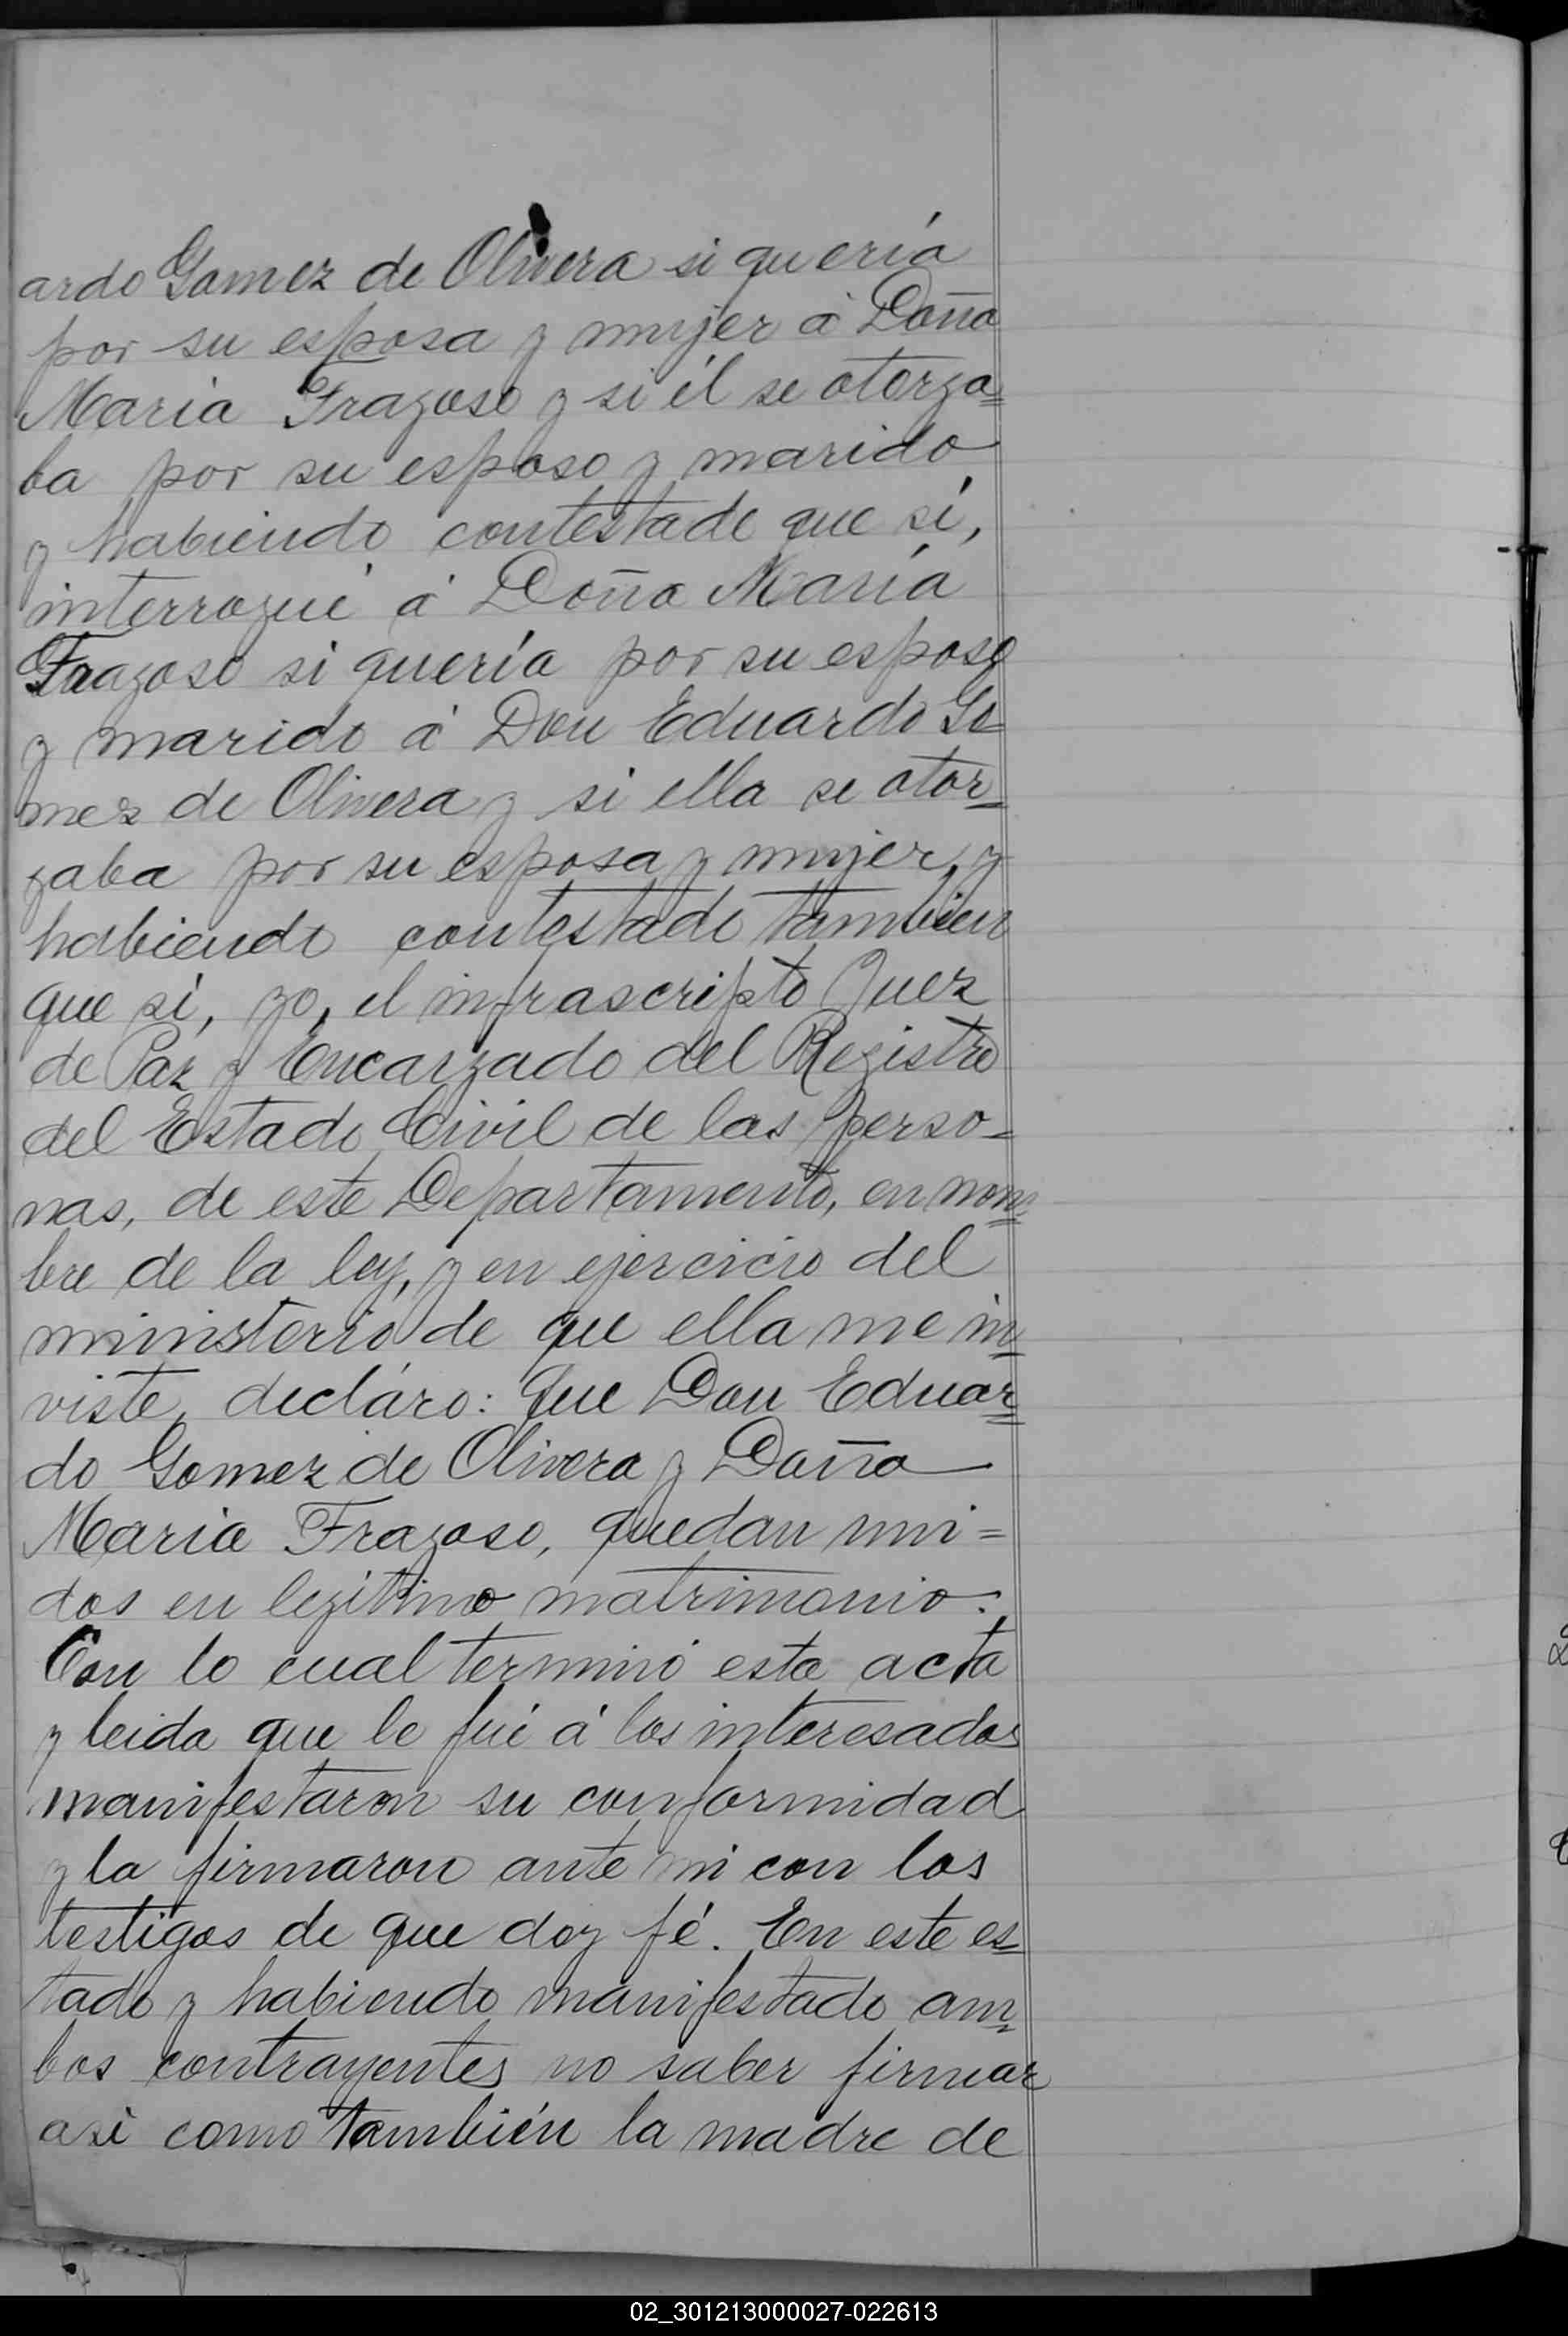 ardo Gomez de Olivera si quería
por su esposa y mujer á Doña
Maria Fragoso y si él se otorga=
ba por su esposo y marido
y habiendo contestado que sí,
interrogué á Doña María
Fragoso si quería por su esposo
y marido á Don Eduardo Go=
mez de Olivera y si ella se otor=
gaba por su esposa y mujer, y
habiendo contestado tambien
que sí, yo, el infrascripto Juez
de Paz y Encargado del Registro
del Estado Civil de las perso=
nas, de este Departamento, en nom=
bre de la ley, y en ejercicio del
ministerio de que ella me in=
viste, decláro: Que Don Eduar=
do Gomez de Olivera y Doña
Maria Fragoso, quedan uni=
dos en legítimo matrimonio.
Con lo cual terminó esta acta
y leida que le fué á los interesados
manifestaron su conformidad
y la firmaron ante mi con los
testigos de que doy fé. En este es=
tado y habiendo manifestado am=
bos contrayentes no saber firmar
asi como también la madre de
02_301213000027-022613